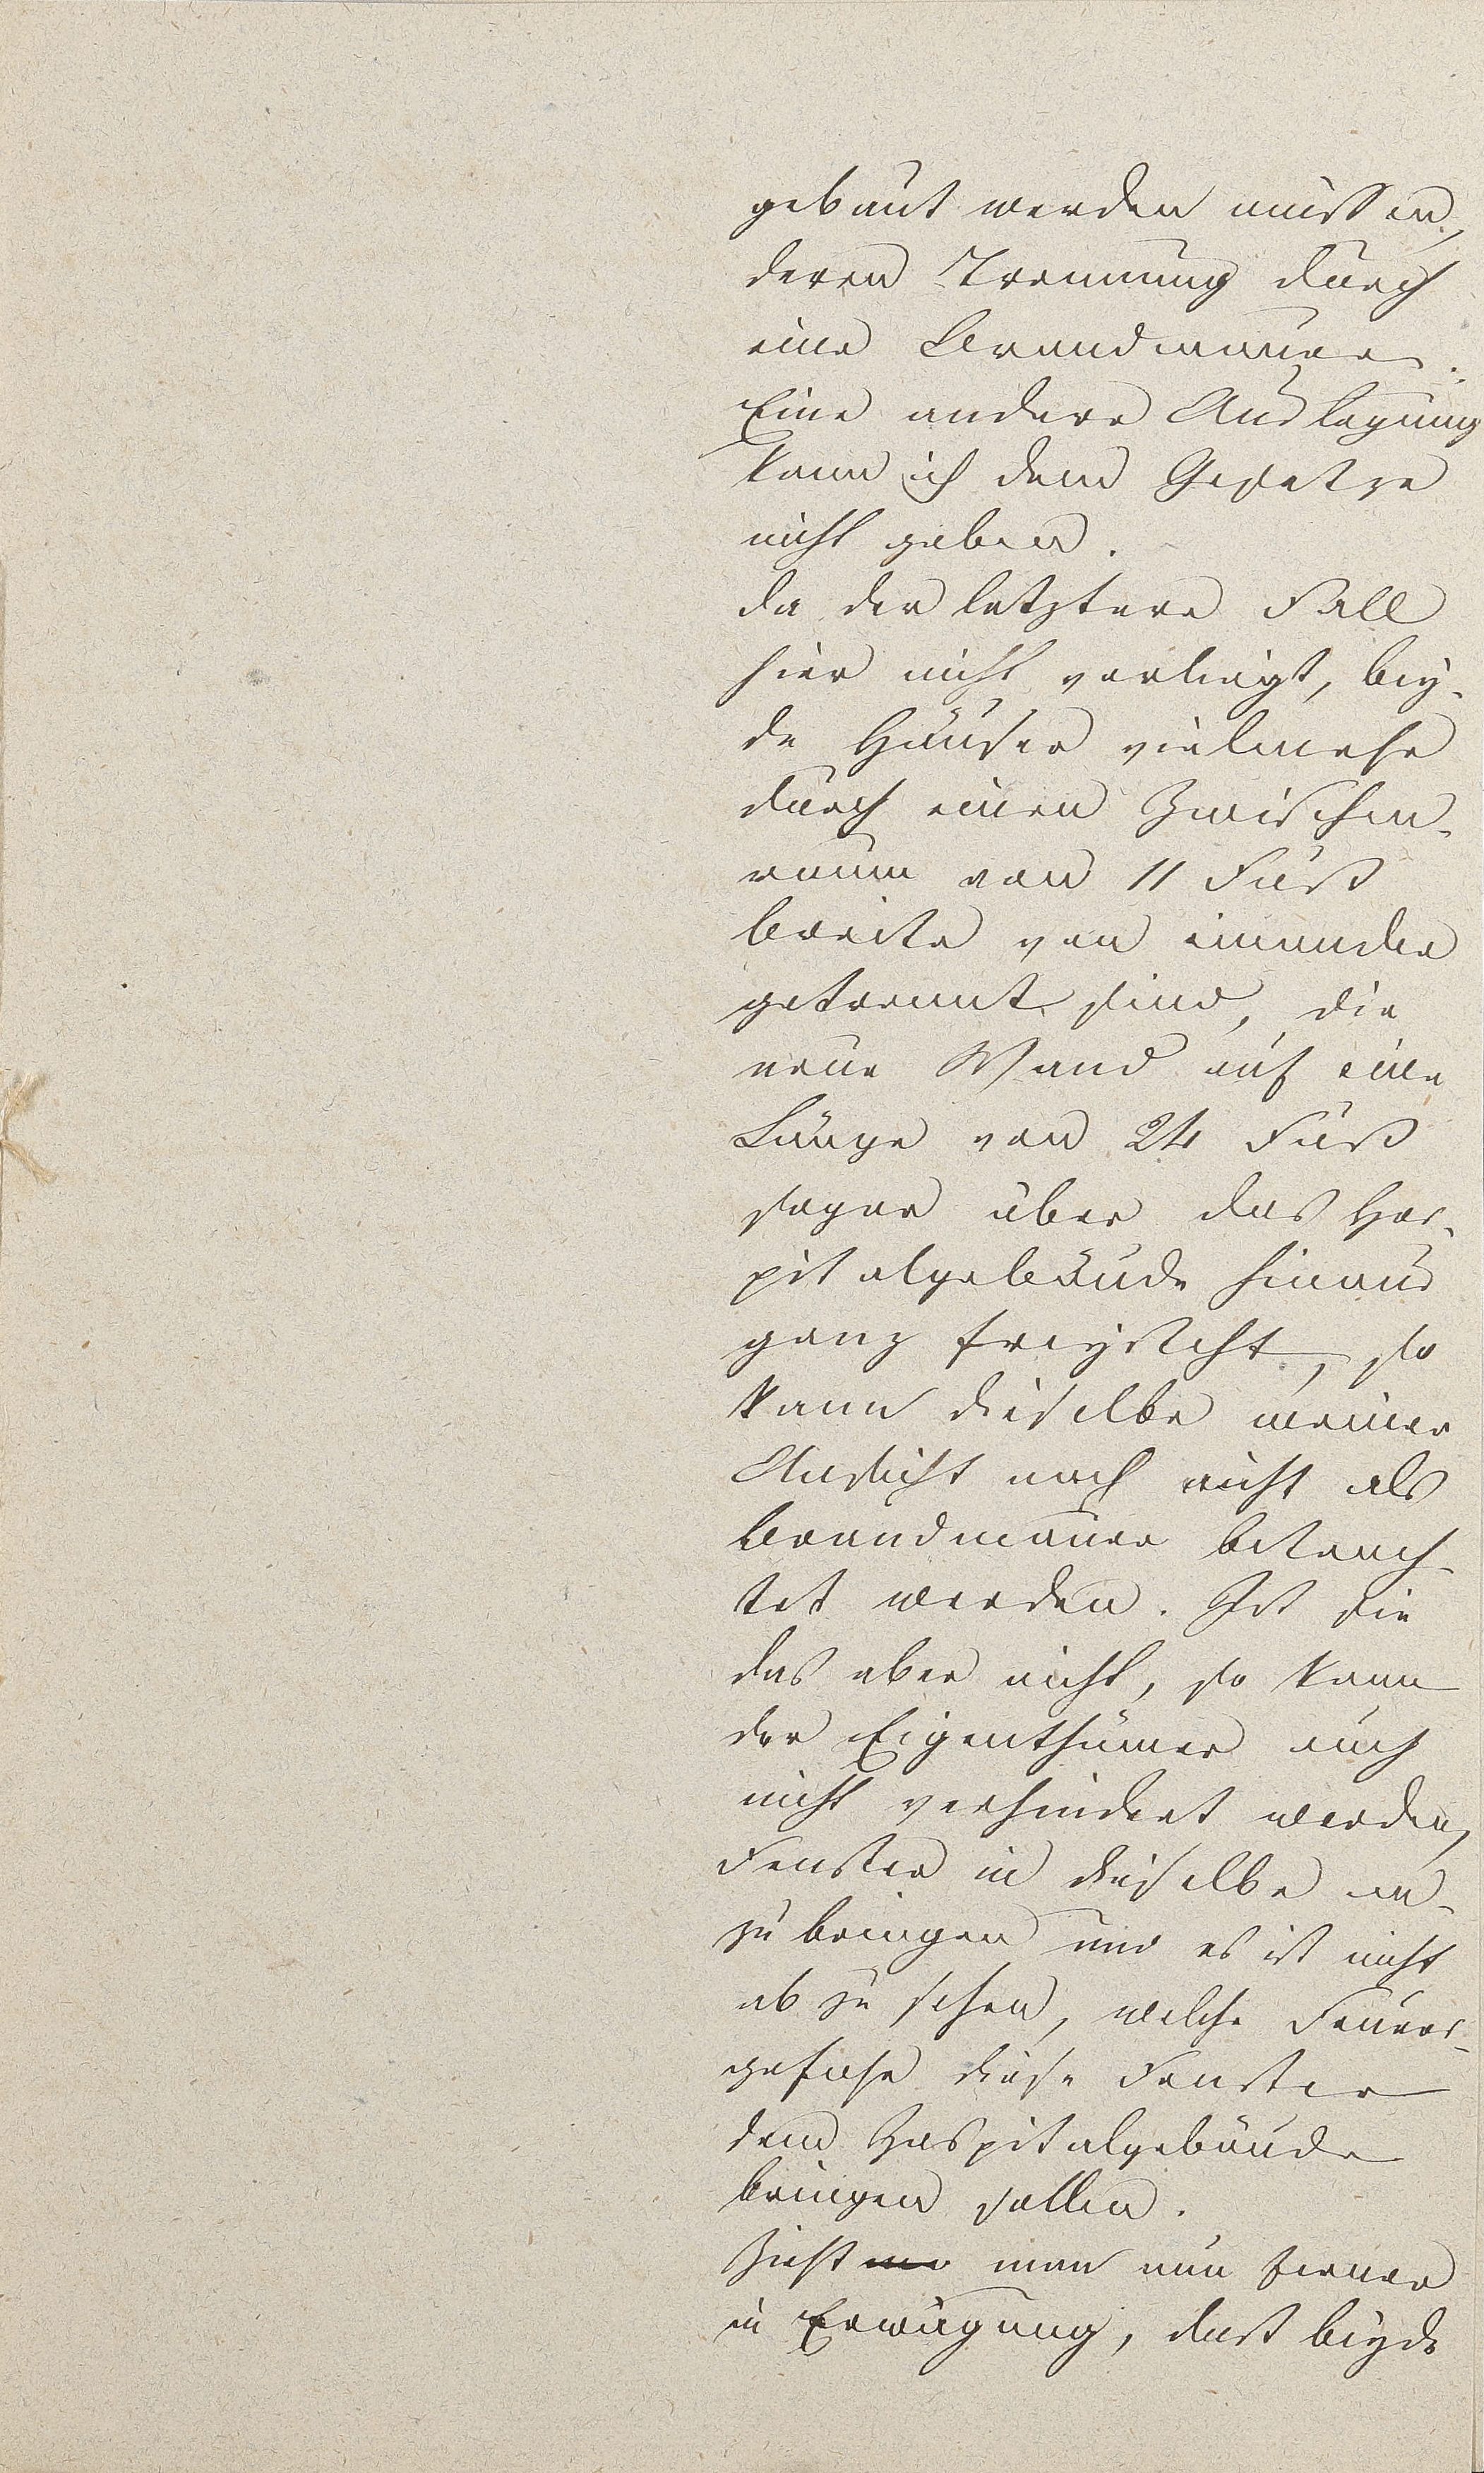 gebaut werden müssen,
deren Trennung durch
eine Brandmauer.
Eine andere Auslegung
kann ich dem Gesetze
nicht geben.
da der letztere Fall
hier nicht vorliegt, bey-
de Häuser vielmehr
durch einen Zwischen-
raum von 11 Fuß
breite von einander
getrennt sind, die
neue Wand auf eine
Länge von 24 Fuß
sogar über das Hos-
pitalgebäude hinaus
ganz freysteht, so
kann dieselbe meiner
Ansicht nach nicht als
Brandmauer betrach-
tet werden. Ist sie
das aber nicht, so kann
der Eigenthümer auch
nicht verhindert werden,
Fenster in dieselbe an-
zu bringen und es ist nicht
ab zu sehen, welche Feuers-
gefahr diese Fenster
dem Hospitalgebäude
bringen sollen.
Zieht man nun ferner
in Erwägung, dast beyde